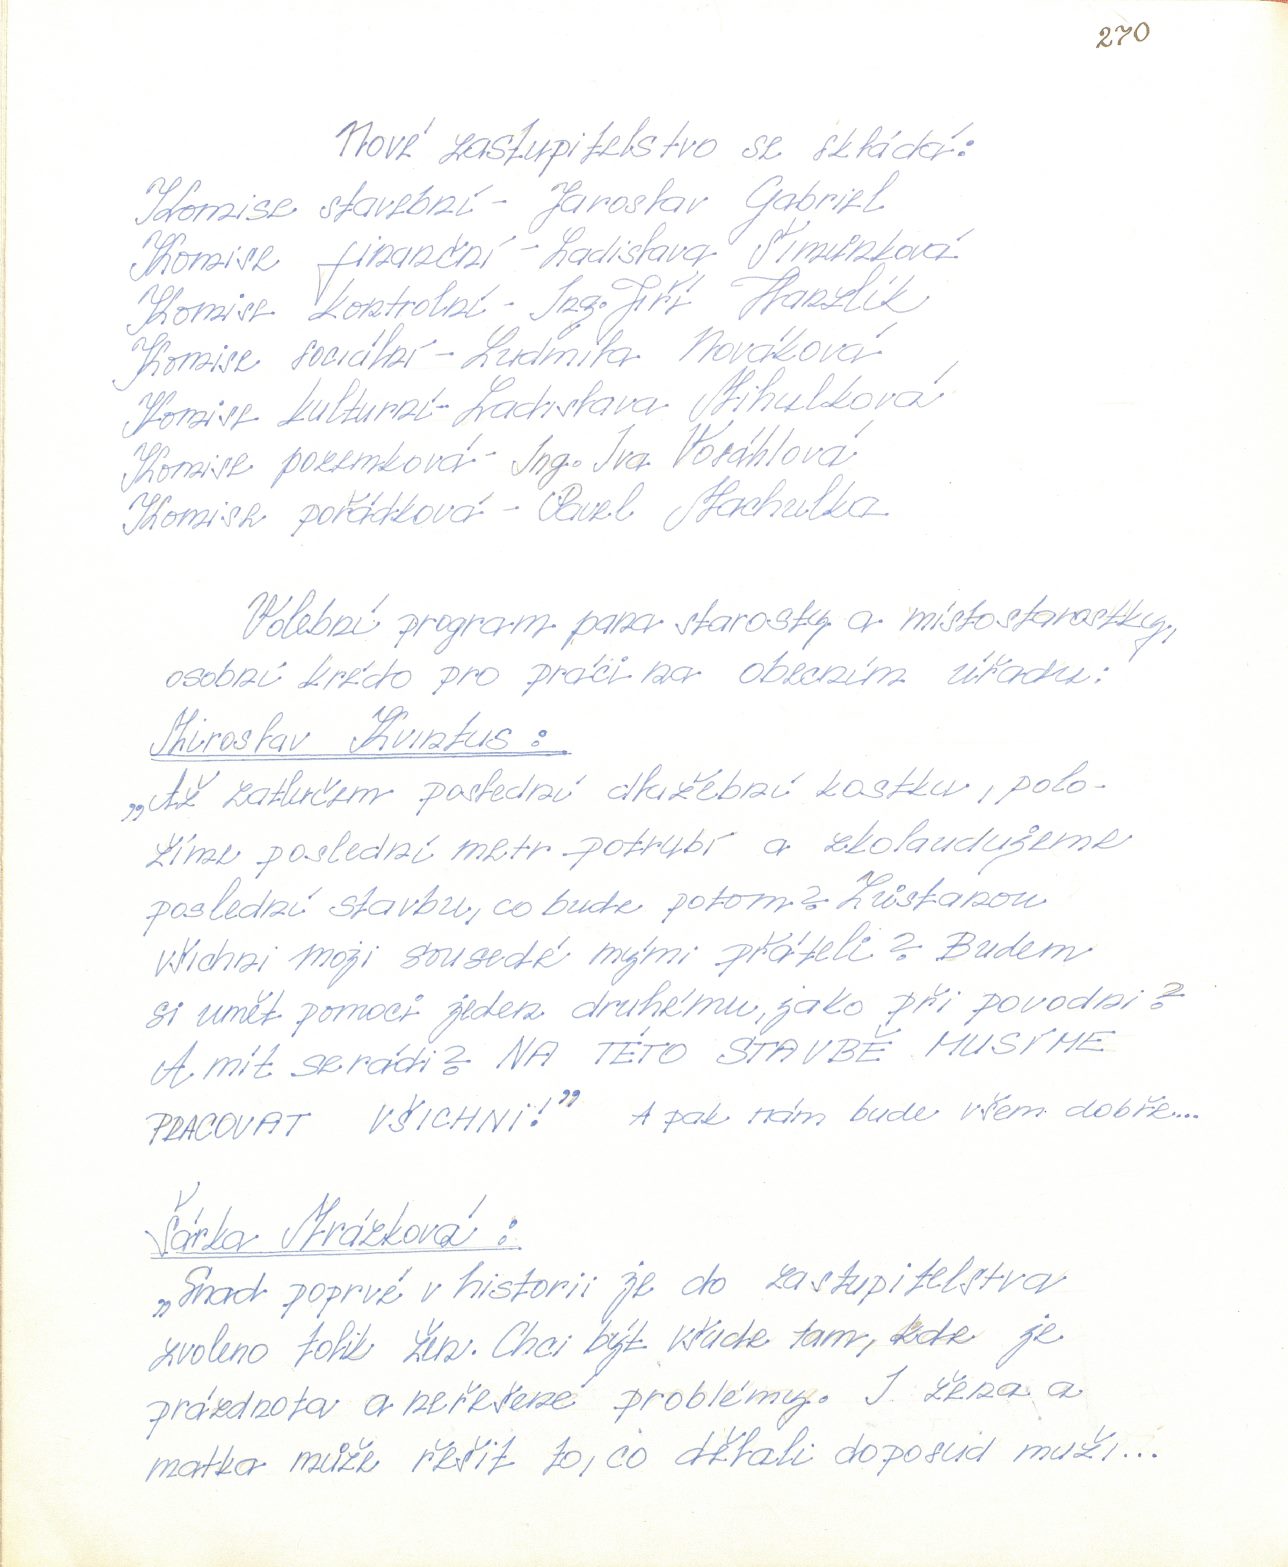 270
Nové zastupitelstvo se skládá:
Komise stavební - Jaroslav Gabriel
Komise finanční - Ladislava Šimůnková
Komise kontrolní - Ing. Jiří Hanzlík
Komise sociální - Ludmila Nováková
Komise kulturní - Ladislava Mihulková
Komise pozemková - Ing. Iva Vosáhlová
Komise pořádková - Pavel Machulka
Volební program pana starosty a místostarostky,
osobní krédo pro práci na obecním úřadu:
Miroslav Kvintus :
„Až zatlučem poslední dlažební kostku, polo-
žíme poslední metr potrubí a zkolaudujeme
poslední stavbu, co bude potom? Zůstanou
všichni moji sousedé mými přáteli? Budem
si umět pomoci jeden druhému, jako při povodni?
A mít se rádi? NA TÉTO STAVBĚ MUSÍME
PRACOVAT VŠICHNI!" A pak nám bude všem dobře...
Šárka Mrázková :
„Snad poprvé v historii je do zastupitelstva
zvoleno tolik žen. Chci být všude tam, kde je
prázdnota a neřešené problémy. I žena a
matka může řešit to, co dělali doposud muži...